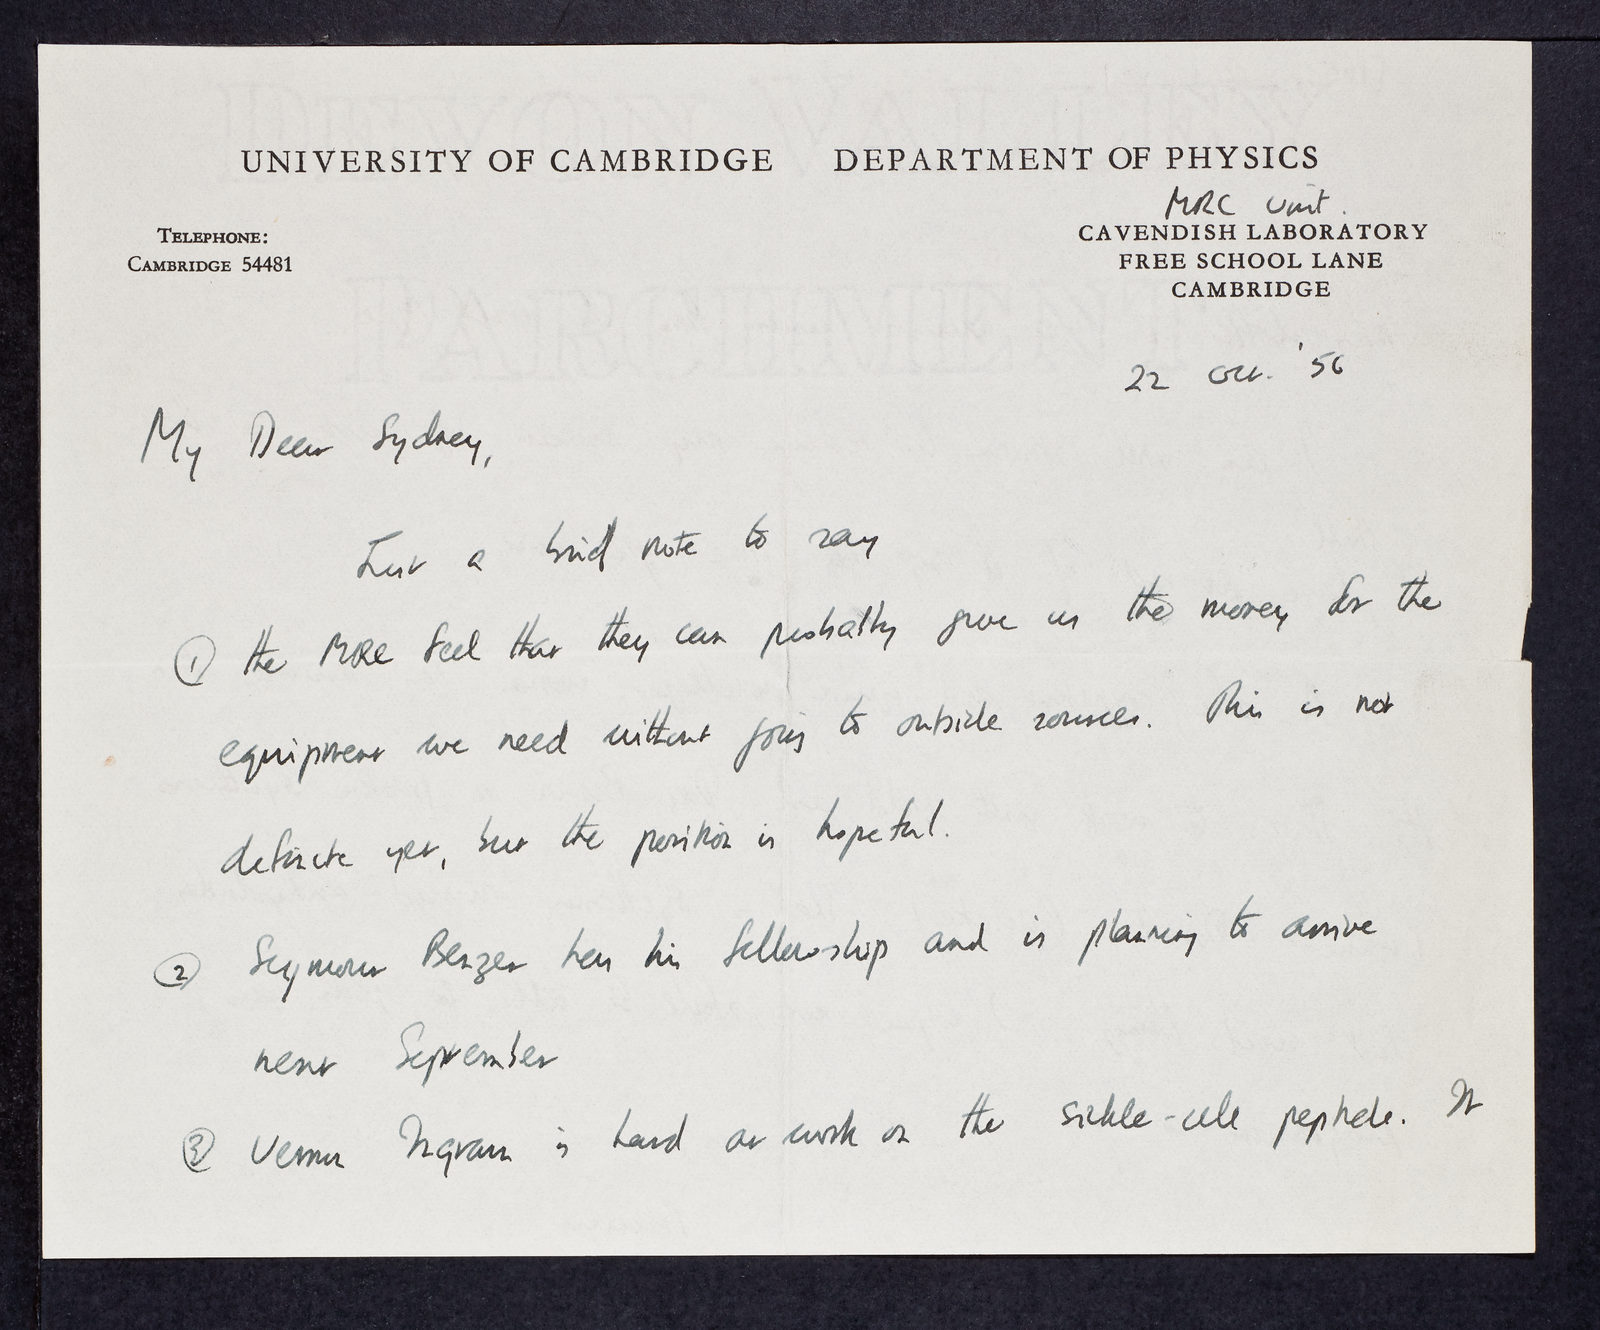 UNIVERSITY OF CAMBRIDGE DEPARTMENT OF PHYSICS
MRC Unit.
TELEPHONE:
CAMBRIDGE 54481
CAVENDISH LABORATORY
FREE SCHOOL LANE
CAMBRIDGE
22 Oct. '56
My Dear Sydney,
Just a brief note to say
① the MRC feel that they can probably give us the money for the
equipment we need without going to outside sources. This is not
definite yet, but the position is hopeful.
② Seymour Benzer has his fellowship and is planning to arrive
next September
③ Vernon Ingram is hard at work on the sickle-cell peptide. It